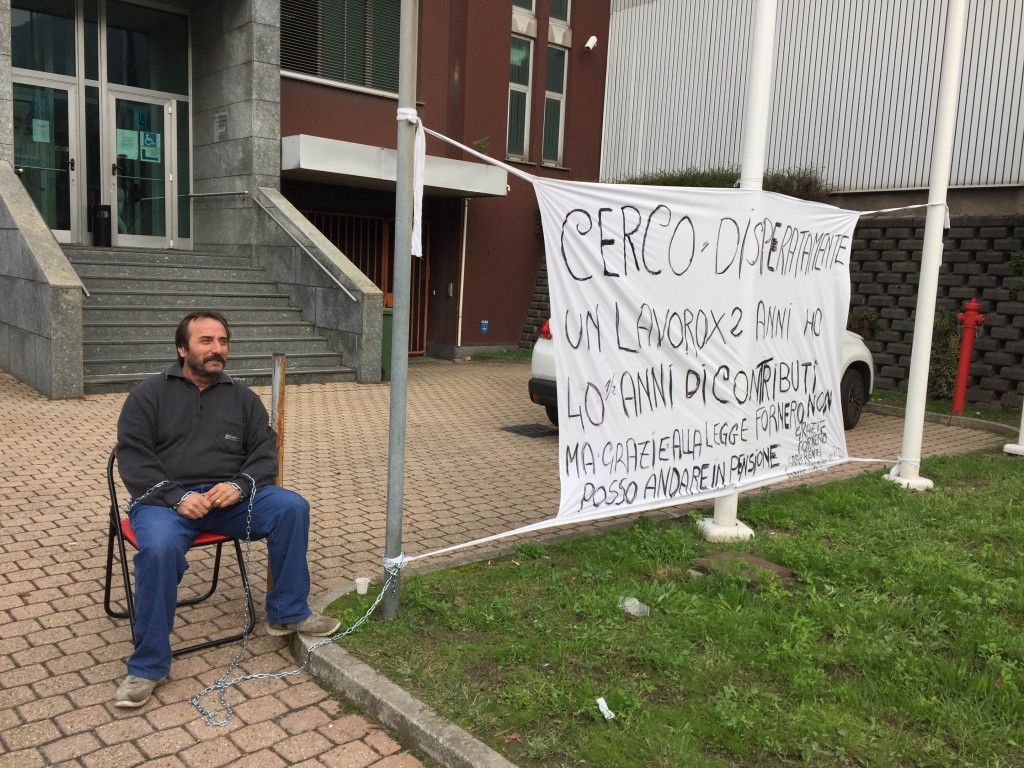 CERCO DISPERATAMENTE
UN LAVORO X 2 ANNI HO
40 1/2 ANNI DI CONTRIBUTI
MA GRAZIE ALLA LEGGE FORNERO NON
POSSO ANDARE IN PENSIONE
GRAZIE
FORNERO